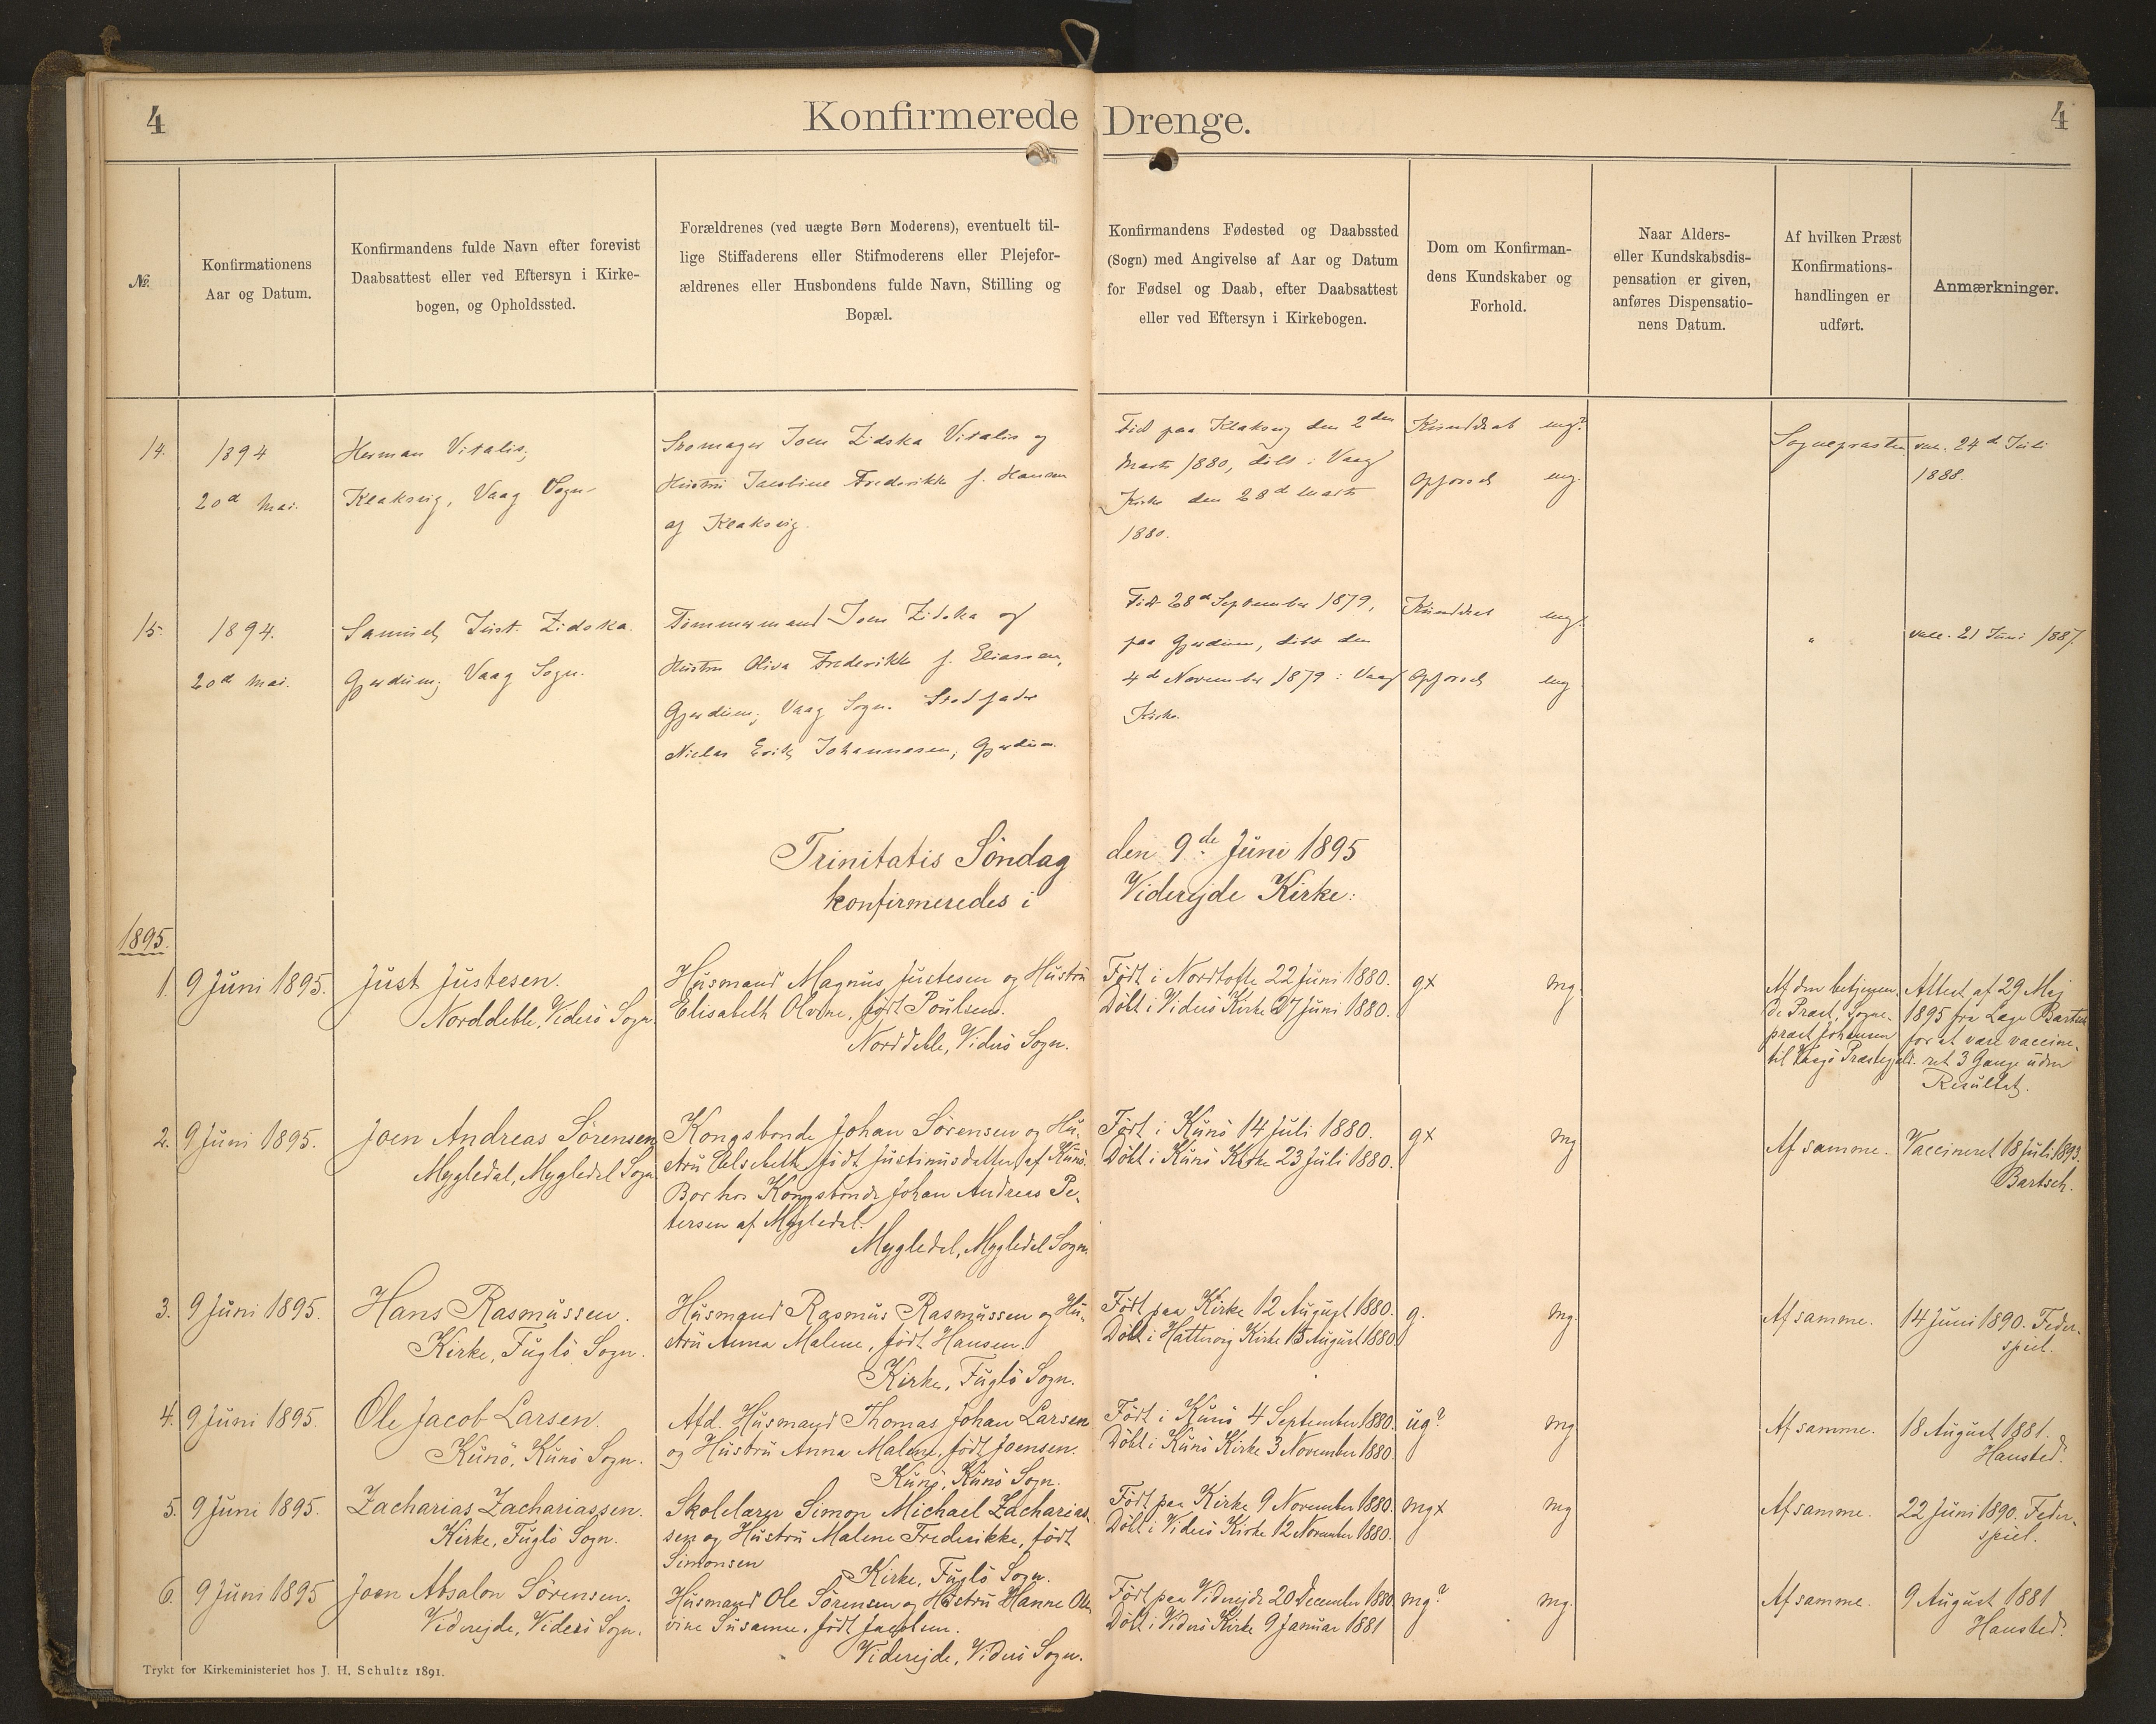 4
Konfirmerede Drenge.
4
№.
Konfirmationens
Aar og Datum.
Konfirmandens fulde Navn efter forevist
Daabsattest eller ved Eftersyn i Kirke-
bogen, og Opholdssted.
Forældrenes (ved uægte Børn Moderens), eventuelt til-
lige Stiffaderens eller Stifmoderens eller Plejefor-
ældrenes eller Husbondens fulde Navn, Stilling og
Bopæl.
Konfirmandens Fødested og Daabssted
(Sogn) med Angivelse af Aar og Datum
for Fødsel og Daab, efter Daabsattest
eller ved Eftersyn i Kirkebogen.
Dom om Konfirman-
dens Kundskaber og
Forhold.
Naar Alders-
eller Kundskabsdis-
pensation er given,
anføres Dispensatio-
nens Datum.
Af hvilken Præst
Konfirmations-
handlingen er
udført.
Anmærkninger.
14.
1894
20d Mai.
Herman Vitalis,
Klaksvig, Vaag Sogn
Skomager Joen Zidska Vitalis og
Hustru Jacobine Frederikke f. Hansen
af Klaksvig.
Född paa Klaksvig den 2den
Marts 1880, döbt i Vaag
Kirke den 28d Marts
1880.
Kundskab mg?
Opførsel mg.
Sognepræsten
vac. 24d Juli
1888.
15.
1894.
20d Mai.
Samuel Just. Zidska.
Gjerdum, Vaag Sogn.
Tømmermand Joen Zidska og
Hustru Oliva Frederikke f. Eliassen,
Gjerdum, Vaag Sogn. Stedfader
Niclas Erik Johannesen, Gjerdum.
Född 28d September 1879,
paa Gjerdum, döbt den
4de November 1879 i Vaag
Kirke.
Kundskab
Opførsel mg
"
vacc. 21 Juni 1887.
Trinitatis Söndag den 9de Juni 1895
konfirmeredes i Viderejde Kirke:
1895.
1.
9 Juni 1895.
Just Justesen.
Norddeble, Viderö Sogn.
Husmand Magnus Justesen og Hustru
Elisabeth Olvine, født Poulsen.
Norddeble, Viderö Sogn.
Født i Nordtofte 22 Juni 1880.
Döbt i Viderö Kirke 27 Juni 1880.
gx
mg.
Af den betjenen-
de Præst, Sogne-
præst Johansen
til Vaagö Præstegjeld.
Attest af 29 Maj
1895 fra Læge Bartsch
for at være vaccine-
ret 3 Gange uden
Resultat.
2.
9 Juni 1895.
Joen Andreas Sørensen
Mygledal, Mygledal Sogn
Kongsbonde Johan Sørensen og Hu-
stru Elsebeth, født Justinusdatter af Kunö.
Bor hos Kongsbonde Johan Andreas Pe-
tersen af Mygledal.
Mygledal, Mygledal Sogn
Født i Kunö 14 Juli 1880.
Döbt i Kunö Kirke 23 Juli 1880.
gx
mg
Af samme.
Vaccineret 18 Juli 1893.
Bartsch.
3.
9 Juni 1895.
Hans Rasmussen.
Kirke, Fuglö Sogn.
Husmand Rasmus Rasmussen og Hu-
stru Anna Malene, født Hansen.
Kirke, Fuglö Sogn.
Født paa Kirke 12 August 1880.
Döbt i Hattervig Kirke 15 August 1880
g.
mg.
Af samme.
14 Juni 1890. Feder-
spiel.
4.
9 Juni 1895.
Ole Jacob Larsen.
Kunö, Kunö Sogn.
Afd. Husmand Thomas Johan Larsen
og Hustru Anna Malene, født Joensen.
Kunö, Kunö Sogn.
Født i Kunö 4 September 1880.
Döbt i Kunö Kirke 3 November 1880.
ug?
mg
Af samme.
18 August 1881.
Hansted.
5.
9 Juni 1895.
Zacharias Zachariassen.
Kirke, Fuglö Sogn.
Skolelærer Simon Michael Zacharias-
sen og Hustru Malene Frederikke, født
Simonsen
Kirke, Fuglö Sogn.
Født paa Kirke 9 November 1880.
Döbt i Viderö Kirke 12 November 1880.
mgx
mg
Af samme.
22 Juni 1890. Feder-
spiel.
6.
9 Juni 1895
Joen Absalon Sørensen.
Viderejde, Viderö Sogn.
Husmand Ole Sørensen og Hustru Hanne Ole-
vine Susanne, født Jacobsen.
Viderejde, Viderö Sogn.
Født paa Viderejde 20 December 1880
Döbt i Viderö Kirke 9 Januar 1881
mg?
mg.
Af samme.
9 August 1881
Hansted.
Trykt for Kirkeministeriet hos J. H. Schultz 1891.